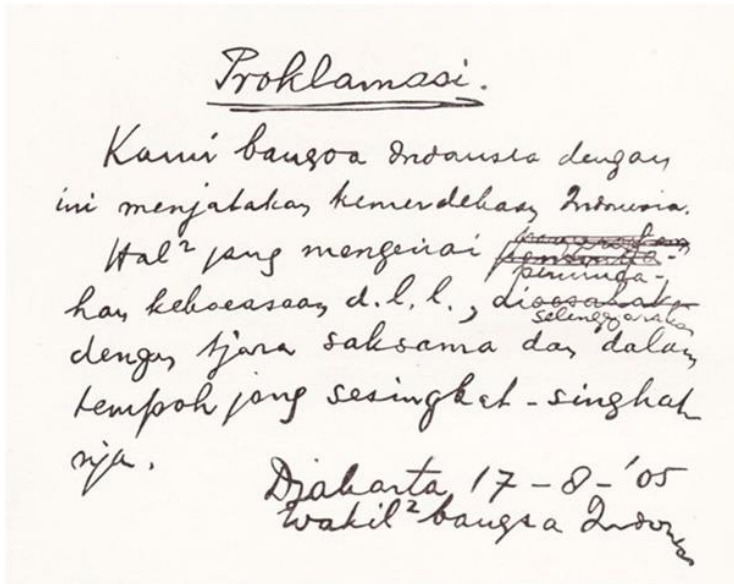 Proklamasi.
Kami bangsa Indonesia dengan
ini menjatakan kemerdekaan Indonesia.
Hal² jang mengenai
peminda-
han keboeasaan d.l.l.,
diselenggarakan
dengan tjara saksama dan dalam
tempoh jang sesingkat-singkat
nja.
Djakarta, 17 - 8 - '05
Wakil² bangsa Indonesia